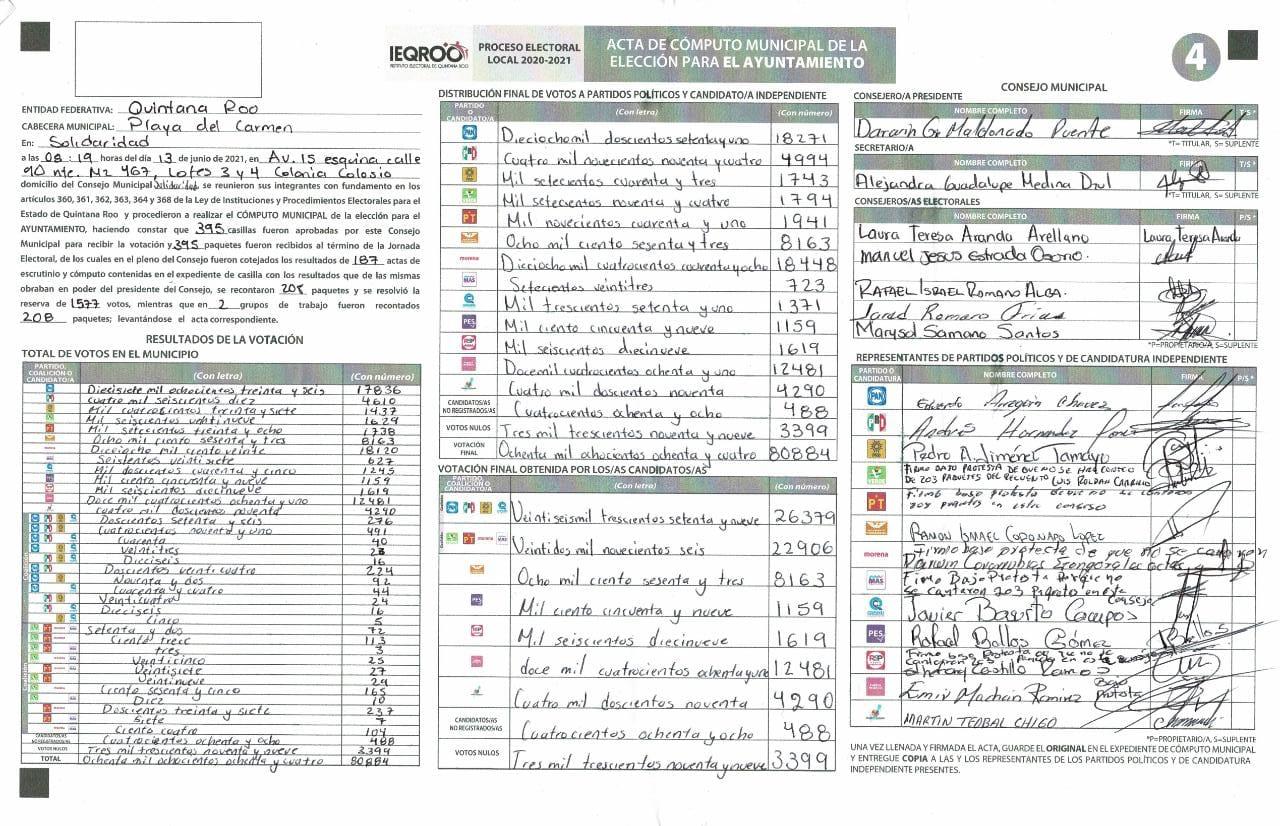 IEQROO
INSTITUTO ELECTORAL DE QUINTANA ROO
PROCESO ELECTORAL
LOCAL 2020-2021
ACTA DE CÓMPUTO MUNICIPAL DE LA
ELECCIÓN PARA EL AYUNTAMIENTO
4
ENTIDAD FEDERATIVA: Quintana Roo
CABECERA MUNICIPAL: Playa del Carmen
En: Solidaridad
a las 08:19 horas del día 13 de junio de 2021, en Av. 15 esquina calle
90 nte. Mz 467, Lotes 3 y 4 Colonia Colosio
domicilio del Consejo Municipal Solidaridad, se reunieron sus integrantes con fundamento en los
artículos 360, 361, 362, 363, 364 y 368 de la Ley de Instituciones y Procedimientos Electorales para el
Estado de Quintana Roo y procedieron a realizar el CÓMPUTO MUNICIPAL de la elección para el
AYUNTAMIENTO, haciendo constar que 395 casillas fueron aprobadas por este Consejo
Municipal para recibir la votación y 395 paquetes fueron recibidos al término de la Jornada
Electoral, de los cuales en el pleno del Consejo fueron cotejados los resultados de 187 actas de
escrutinio y cómputo contenidas en el expediente de casilla con los resultados que de las mismas
obraban en poder del presidente del Consejo, se recontaron 208 paquetes y se resolvió la
reserva de 1577 votos, mientras que en 2 grupos de trabajo fueron recontados
208 paquetes; levantándose el acta correspondiente.
RESULTADOS DE LA VOTACIÓN
TOTAL DE VOTOS EN EL MUNICIPIO
PARTIDO, COALICIÓN O CANDIDATO/A (Con letra) (Con número)
Diecisiete mil ochocientos treinta y seis 17836
cuatro mil seiscientos diez 4610
Mil cuatrocientos treinta y siete 1437
Mil seiscientos veintinueve 1629
Mil setecientos treinta y ocho 1738
Ocho mil ciento sesenta y tres 8163
Dieciocho mil ciento veinte 18120
Seiscientos veintisiete 627
Mil doscientos cuarenta y cinco 1245
Mil ciento cincuenta y nueve 1159
Mil seiscientos diecinueve 1619
Doce mil cuatrocientos ochenta y uno 12481
cuatro mil doscientos noventa 4290
Doscientos setenta y seis 276
Cuatrocientos noventa y uno 491
Cuarenta 40
Veintitres 23
Dieciseis 16
Doscientos veinticuatro 224
Noventa y dos 92
Cuarenta y cuatro 44
Veinticuatro 24
Dieciseis 16
Cinco 5
Setenta y dos 72
Ciento trece 113
tres 3
Veinticinco 25
Veintisiete 27
Veintinueve 29
Ciento sesenta y cinco 165
Diez 10
Doscientos treinta y siete 237
Siete 7
Ciento cuatro 104
CANDIDATOS/AS NO REGISTRADOS/AS Cuatrocientos ochenta y ocho 488
VOTOS NULOS Tres mil trescientos noventa y nueve 3399
TOTAL Ochenta mil ochocientos ochenta y cuatro 80884
DISTRIBUCIÓN FINAL DE VOTOS A PARTIDOS POLÍTICOS Y CANDIDATO/A INDEPENDIENTE
PARTIDO O CANDIDATO/A (Con letra) (Con número)
PAN Dieciocho mil doscientos setenta y uno 18271
PRI Cuatro mil novecientos noventa y cuatro 4994
Mil setecientos cuarenta y tres 1743
Mil setecientos noventa y cuatro 1794
PT Mil novecientos cuarenta y uno 1941
Ocho mil ciento sesenta y tres 8163
morena Dieciocho mil cuatrocientos cuarenta y ocho 18448
MAS Setecientos veintitres 723
Mil trescientos setenta y uno 1371
PES Mil ciento cincuenta y nueve 1159
RSP Mil seiscientos diecinueve 1619
Doce mil cuatrocientos ochenta y uno 12481
Cuatro mil doscientos noventa 4290
CANDIDATOS/AS NO REGISTRADOS/AS Cuatrocientos ochenta y ocho 488
VOTOS NULOS Tres mil trescientos noventa y nueve 3399
VOTACIÓN FINAL Ochenta mil ochocientos ochenta y cuatro 80884
VOTACIÓN FINAL OBTENIDA POR LOS/AS CANDIDATOS/AS
PARTIDO, COALICIÓN O CANDIDATO/A (Con letra) (Con número)
Veintiseis mil trescientos setenta y nueve 26379
Veintidos mil novecientos seis 22906
Ocho mil ciento sesenta y tres 8163
PES Mil ciento cincuenta y nueve 1159
RSP Mil seiscientos diecinueve 1619
doce mil cuatrocientos ochenta y uno 12481
Cuatro mil doscientos noventa 4290
CANDIDATOS/AS NO REGISTRADOS/AS Cuatrocientos ochenta y ocho 488
VOTOS NULOS Tres mil trescientos noventa y nueve 3399
CONSEJO MUNICIPAL
CONSEJERO/A PRESIDENTE
NOMBRE COMPLETO FIRMA T/S *
Darwin Maldonado Puente
*T= TITULAR, S= SUPLENTE
SECRETARIO/A
NOMBRE COMPLETO FIRMA T/S *
Alejandra Guadalupe Medina Dzul
*T= TITULAR, S= SUPLENTE
CONSEJEROS/AS ELECTORALES
NOMBRE COMPLETO FIRMA P/S *
Laura Teresa Aranda Arellano Laura Teresa Aranda
Manuel Jesus Estrada Osorio.
RAFAEL ISRAEL ROMANO ALBA.
Jared Romero Frias
Marysol Samano Santos
*P=PROPIETARIO/A, S=SUPLENTE
REPRESENTANTES DE PARTIDOS POLÍTICOS Y DE CANDIDATURA INDEPENDIENTE
PARTIDO O CANDIDATURA NOMBRE COMPLETO FIRMA P/S *
PAN Eduardo Chavez
PRI Andrés Hernandez
Pedro A. Jimenez Tamayo
FIRMO BAJO PROTESTA DE QUE NO SE HAN
DE 203 PAQUETES DEL RECUENTO LUIS ROLDAN
PT Firmo bajo protesta
RAMON ISMAEL CORONADO LOPEZ
morena Firmo bajo protesta de que no se
Darwin Covarrubias
MAS Firmo Bajo Protesta
se cantaron 203 en este Consejo
Javier Barrito Campos
PES Rafael Gómez
RSP Firmo bajo Protesta
Castillo Ramos
Emir Machain Ramirez Bajo protesta
MARTIN TEOBAL CHIGO
*P=PROPIETARIO/A, S=SUPLENTE
UNA VEZ LLENADA Y FIRMADA EL ACTA, GUARDE EL ORIGINAL EN EL EXPEDIENTE DE CÓMPUTO MUNICIPAL
Y ENTREGUE COPIA A LAS Y LOS REPRESENTANTES DE LOS PARTIDOS POLÍTICOS Y DE CANDIDATURA
INDEPENDIENTE PRESENTES.